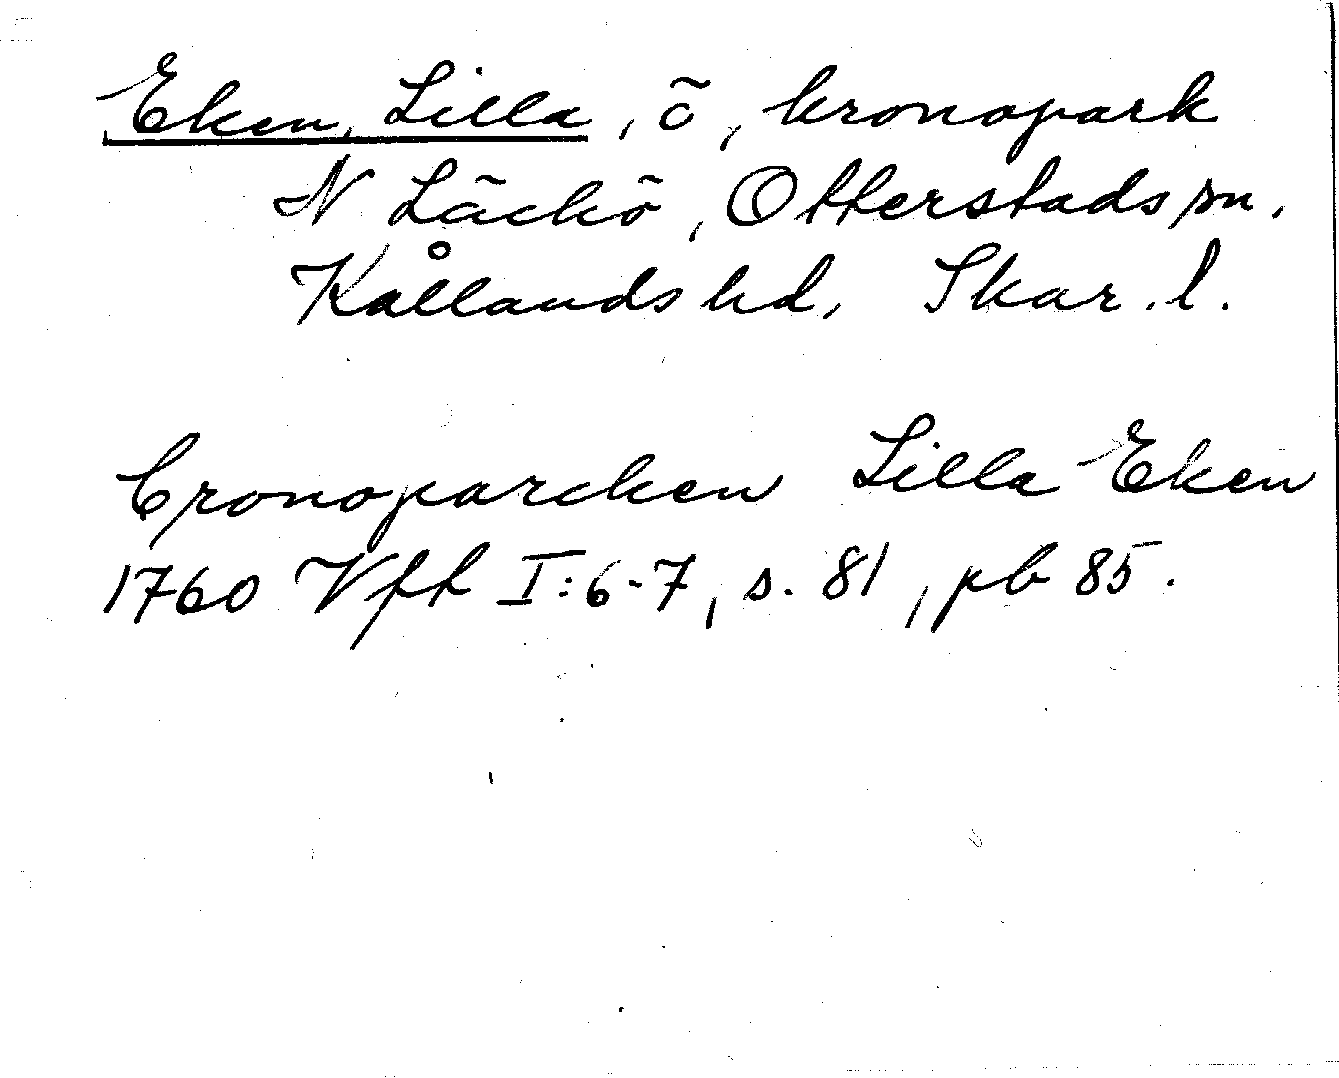 Eken, Lilla, ö, kronopark
N Läckö, Otterstads sn,
Kållands hd, Skar. l.
Cronoparcken Lilla Eken
1760 Vft I:6-7, s. 81, pb 85.